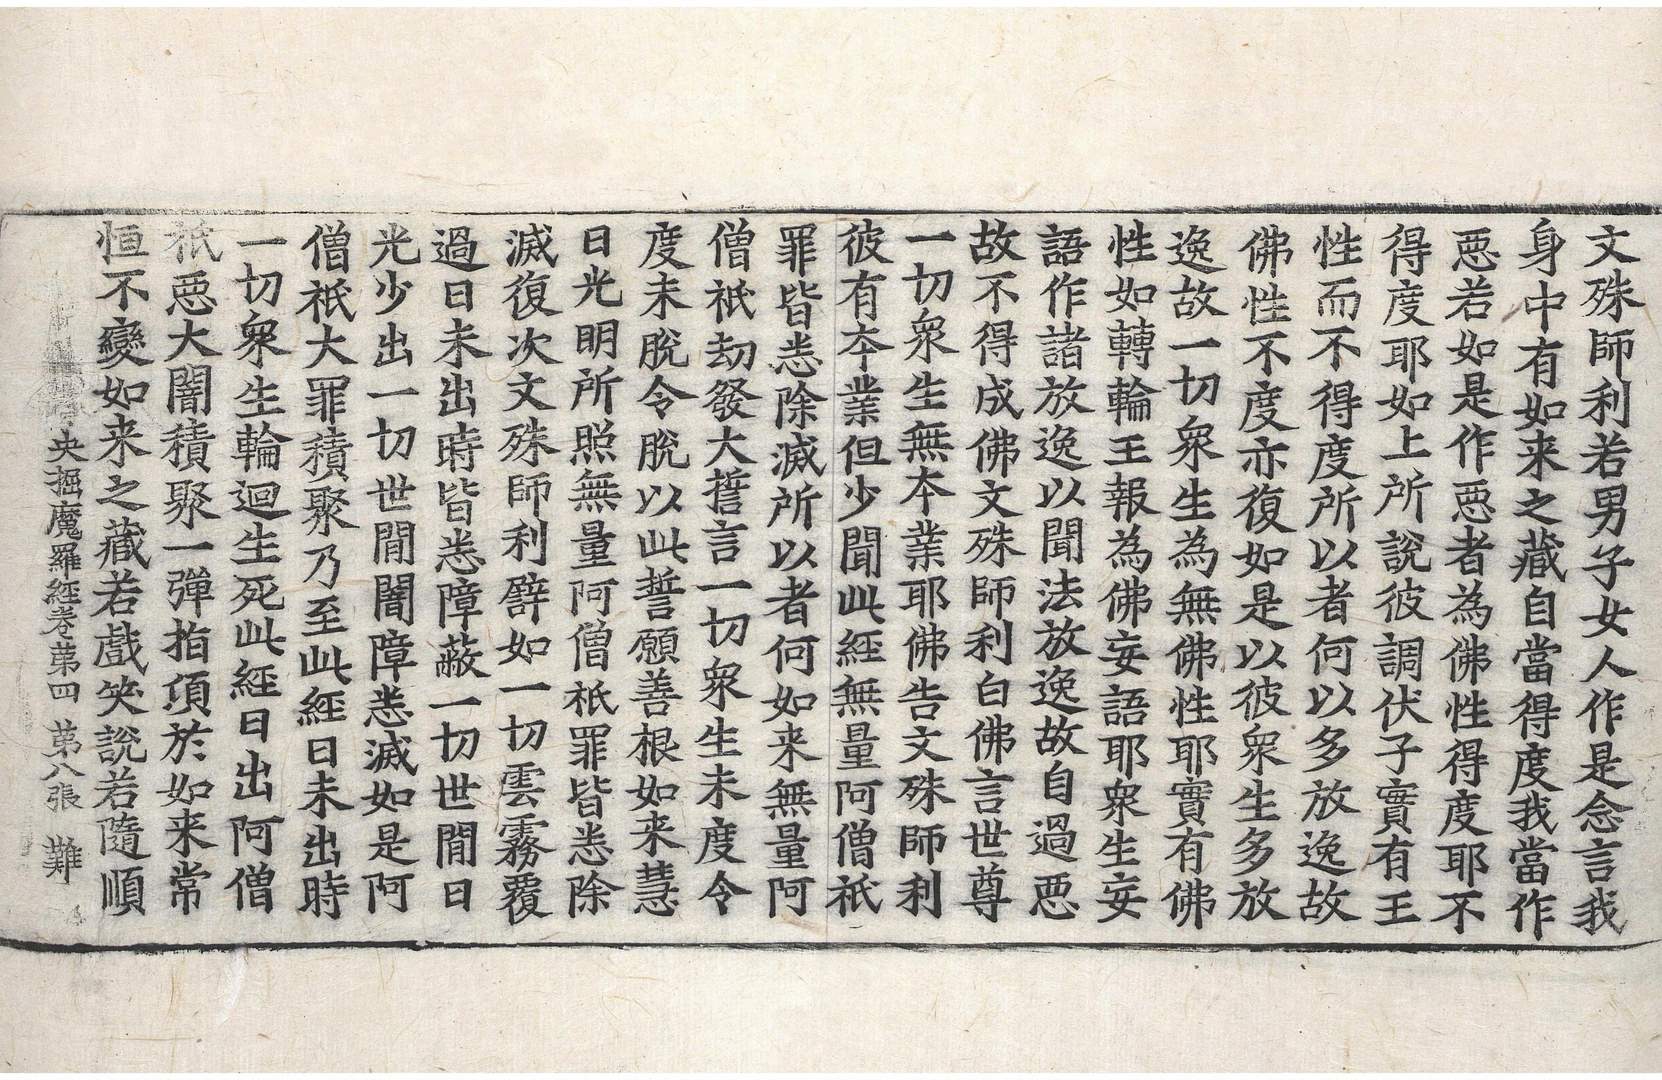 文殊師利若男子女人作是念言我
身中有如来之藏自當得度我當作
惡若如是作惡者為佛性得度耶不
得度耶如上所說彼調伏子實有王
性而不得度所以者何以多放逸故
佛性不度亦復如是以彼衆生多放
逸故一切衆生為無佛性耶實有佛
性如轉輪王報為佛妄語耶衆生妄
語作諸放逸以聞法放逸故自過惡
故不得成佛文殊師利白佛言世尊
一切衆生無本業耶佛告文殊師利
彼有本業但少聞此經無量阿僧祇
罪皆悉除滅所以者何如来無量阿
僧祇劫發大誓言一切衆生未度令
度未脫令脫以此誓願善根如来慧
日光明所照無量阿僧祇罪皆悉除
滅復次文殊師利譬如一切雲霧覆
過日未出時皆悉障蔽一切世閒日
光少出一切世閒闇障悉滅如是阿
僧祇大罪積聚乃至此經日未出時
一切衆生輪迴生死此經日出阿僧
祇惡大闇積聚一彈指頃於如来常
恒不變如来之藏若戲笑說若隨順
央掘魔羅經卷第四 第八張 難